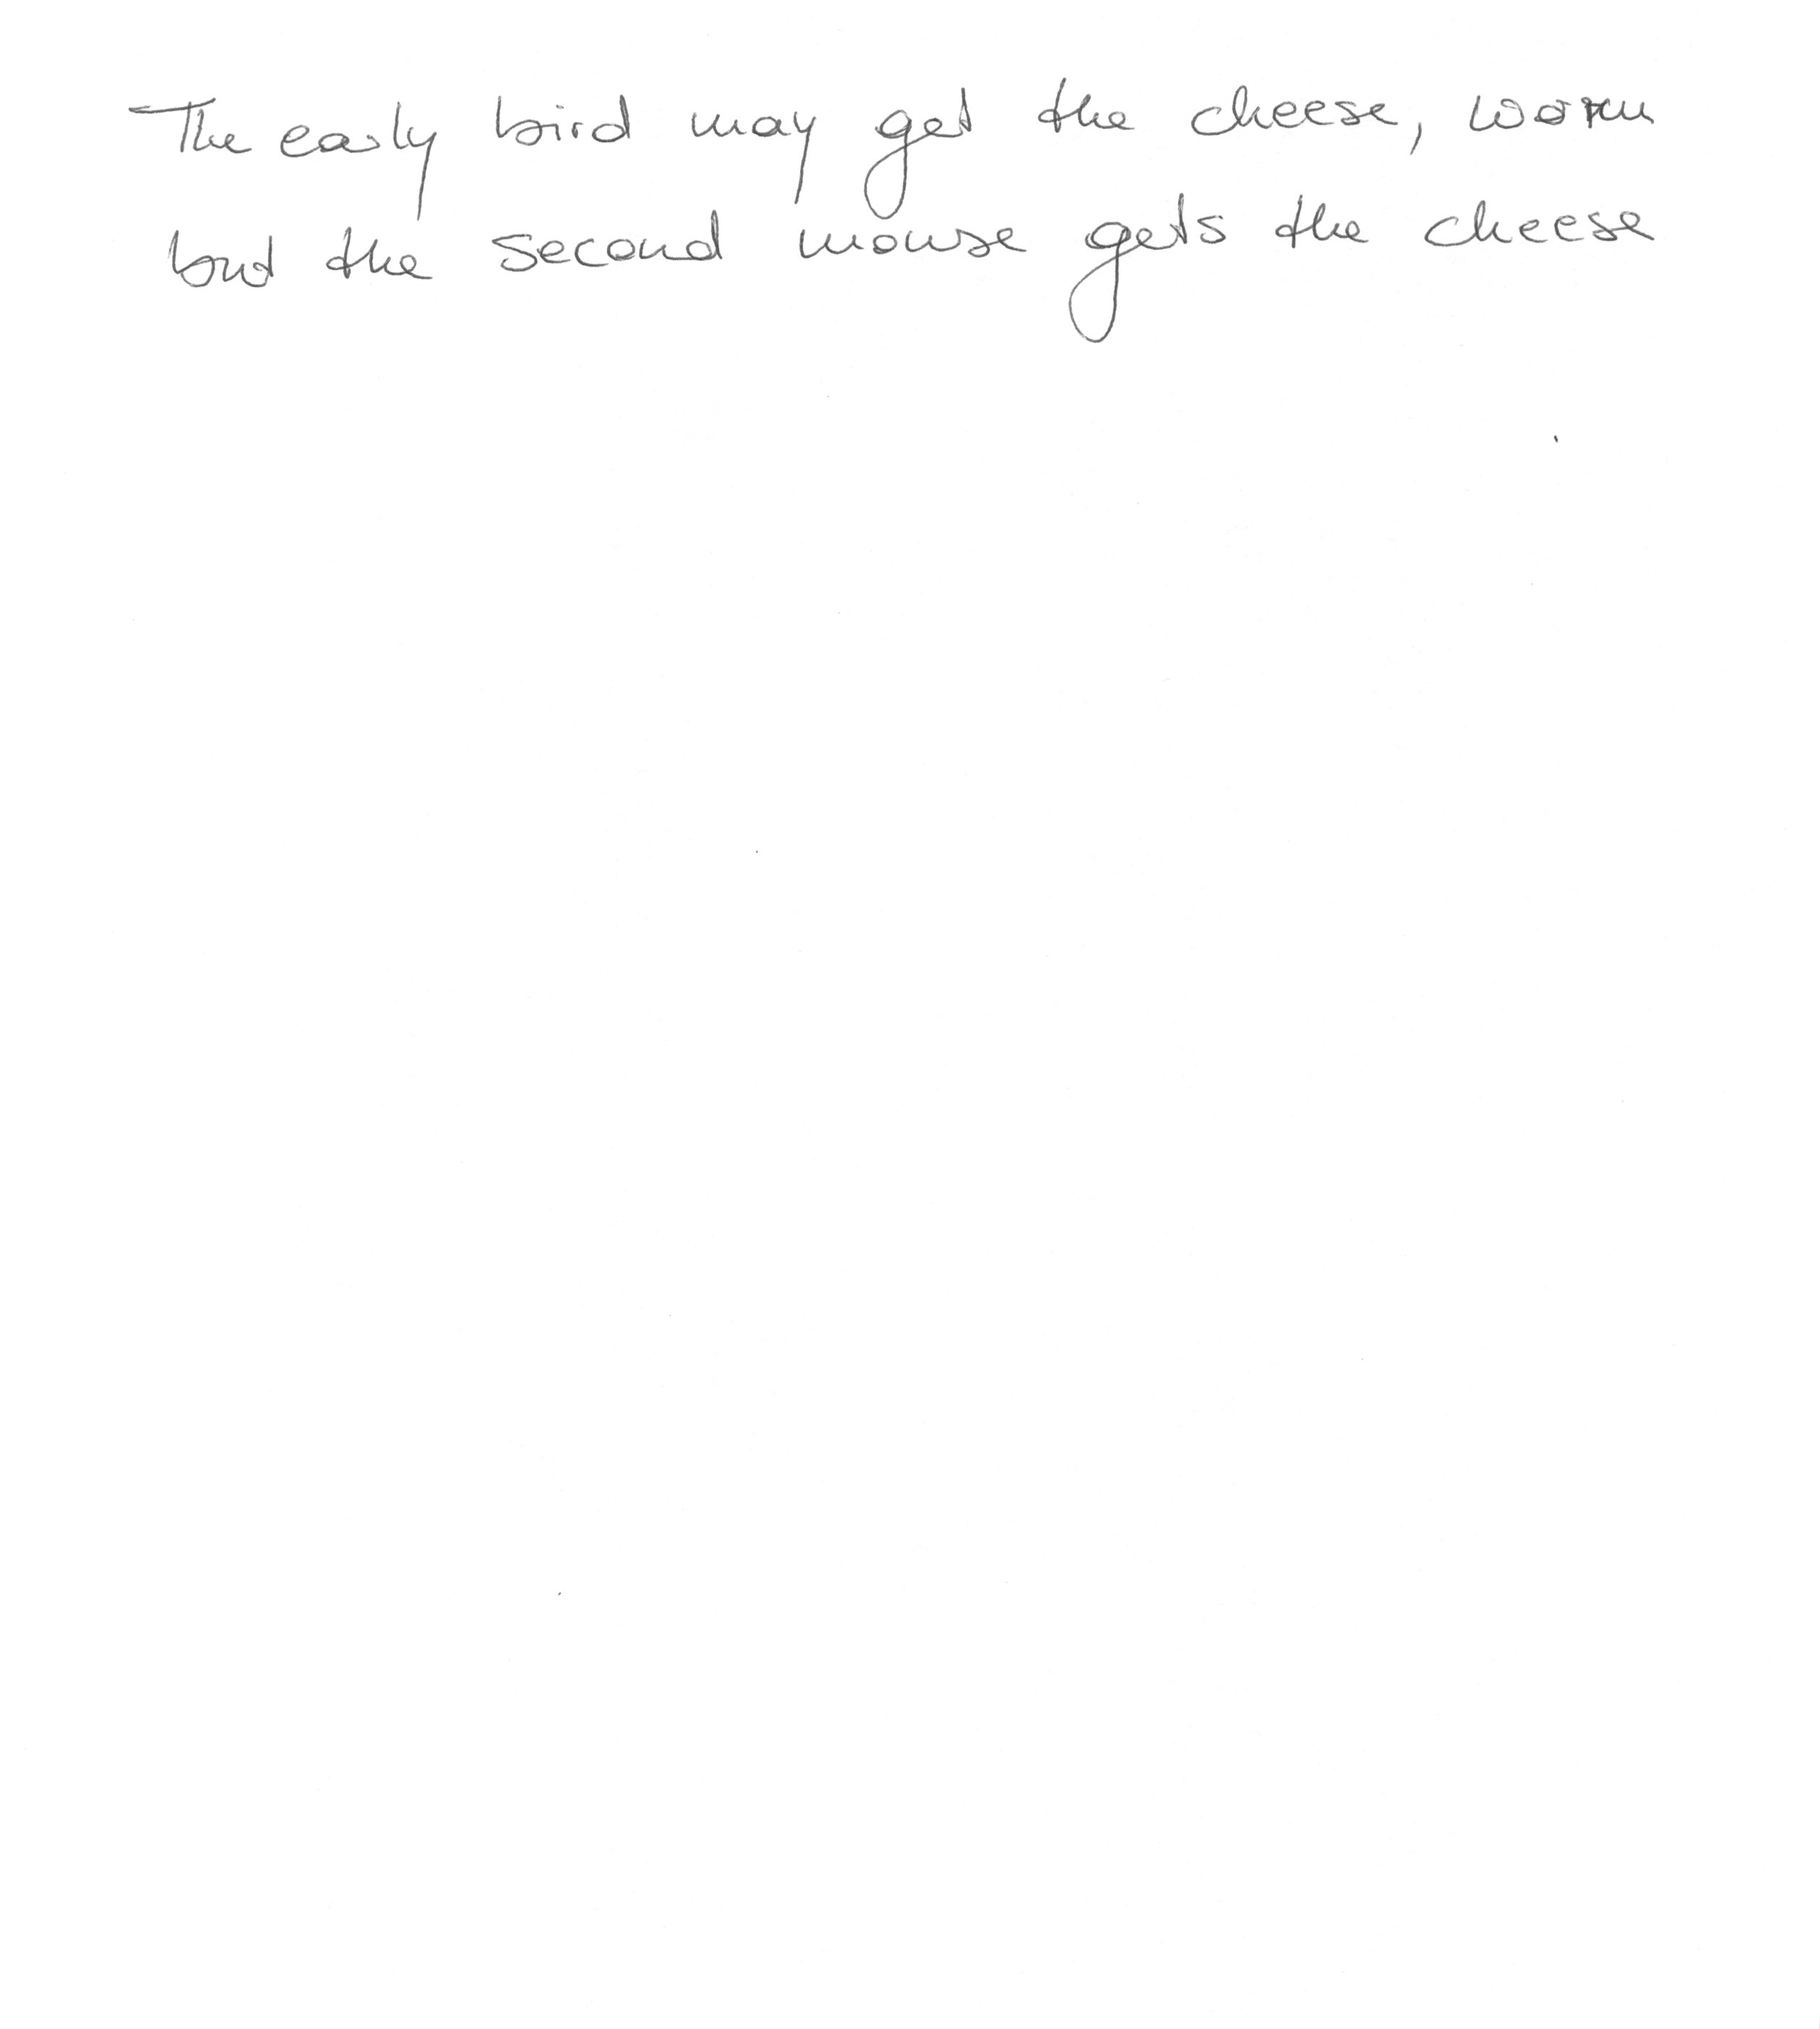 The early bird may get the cheese, worm
but the second mouse gets the cheese